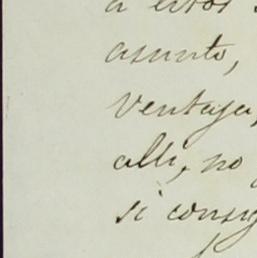 a estos
asunto,
ventaja,
alli, no
si consig